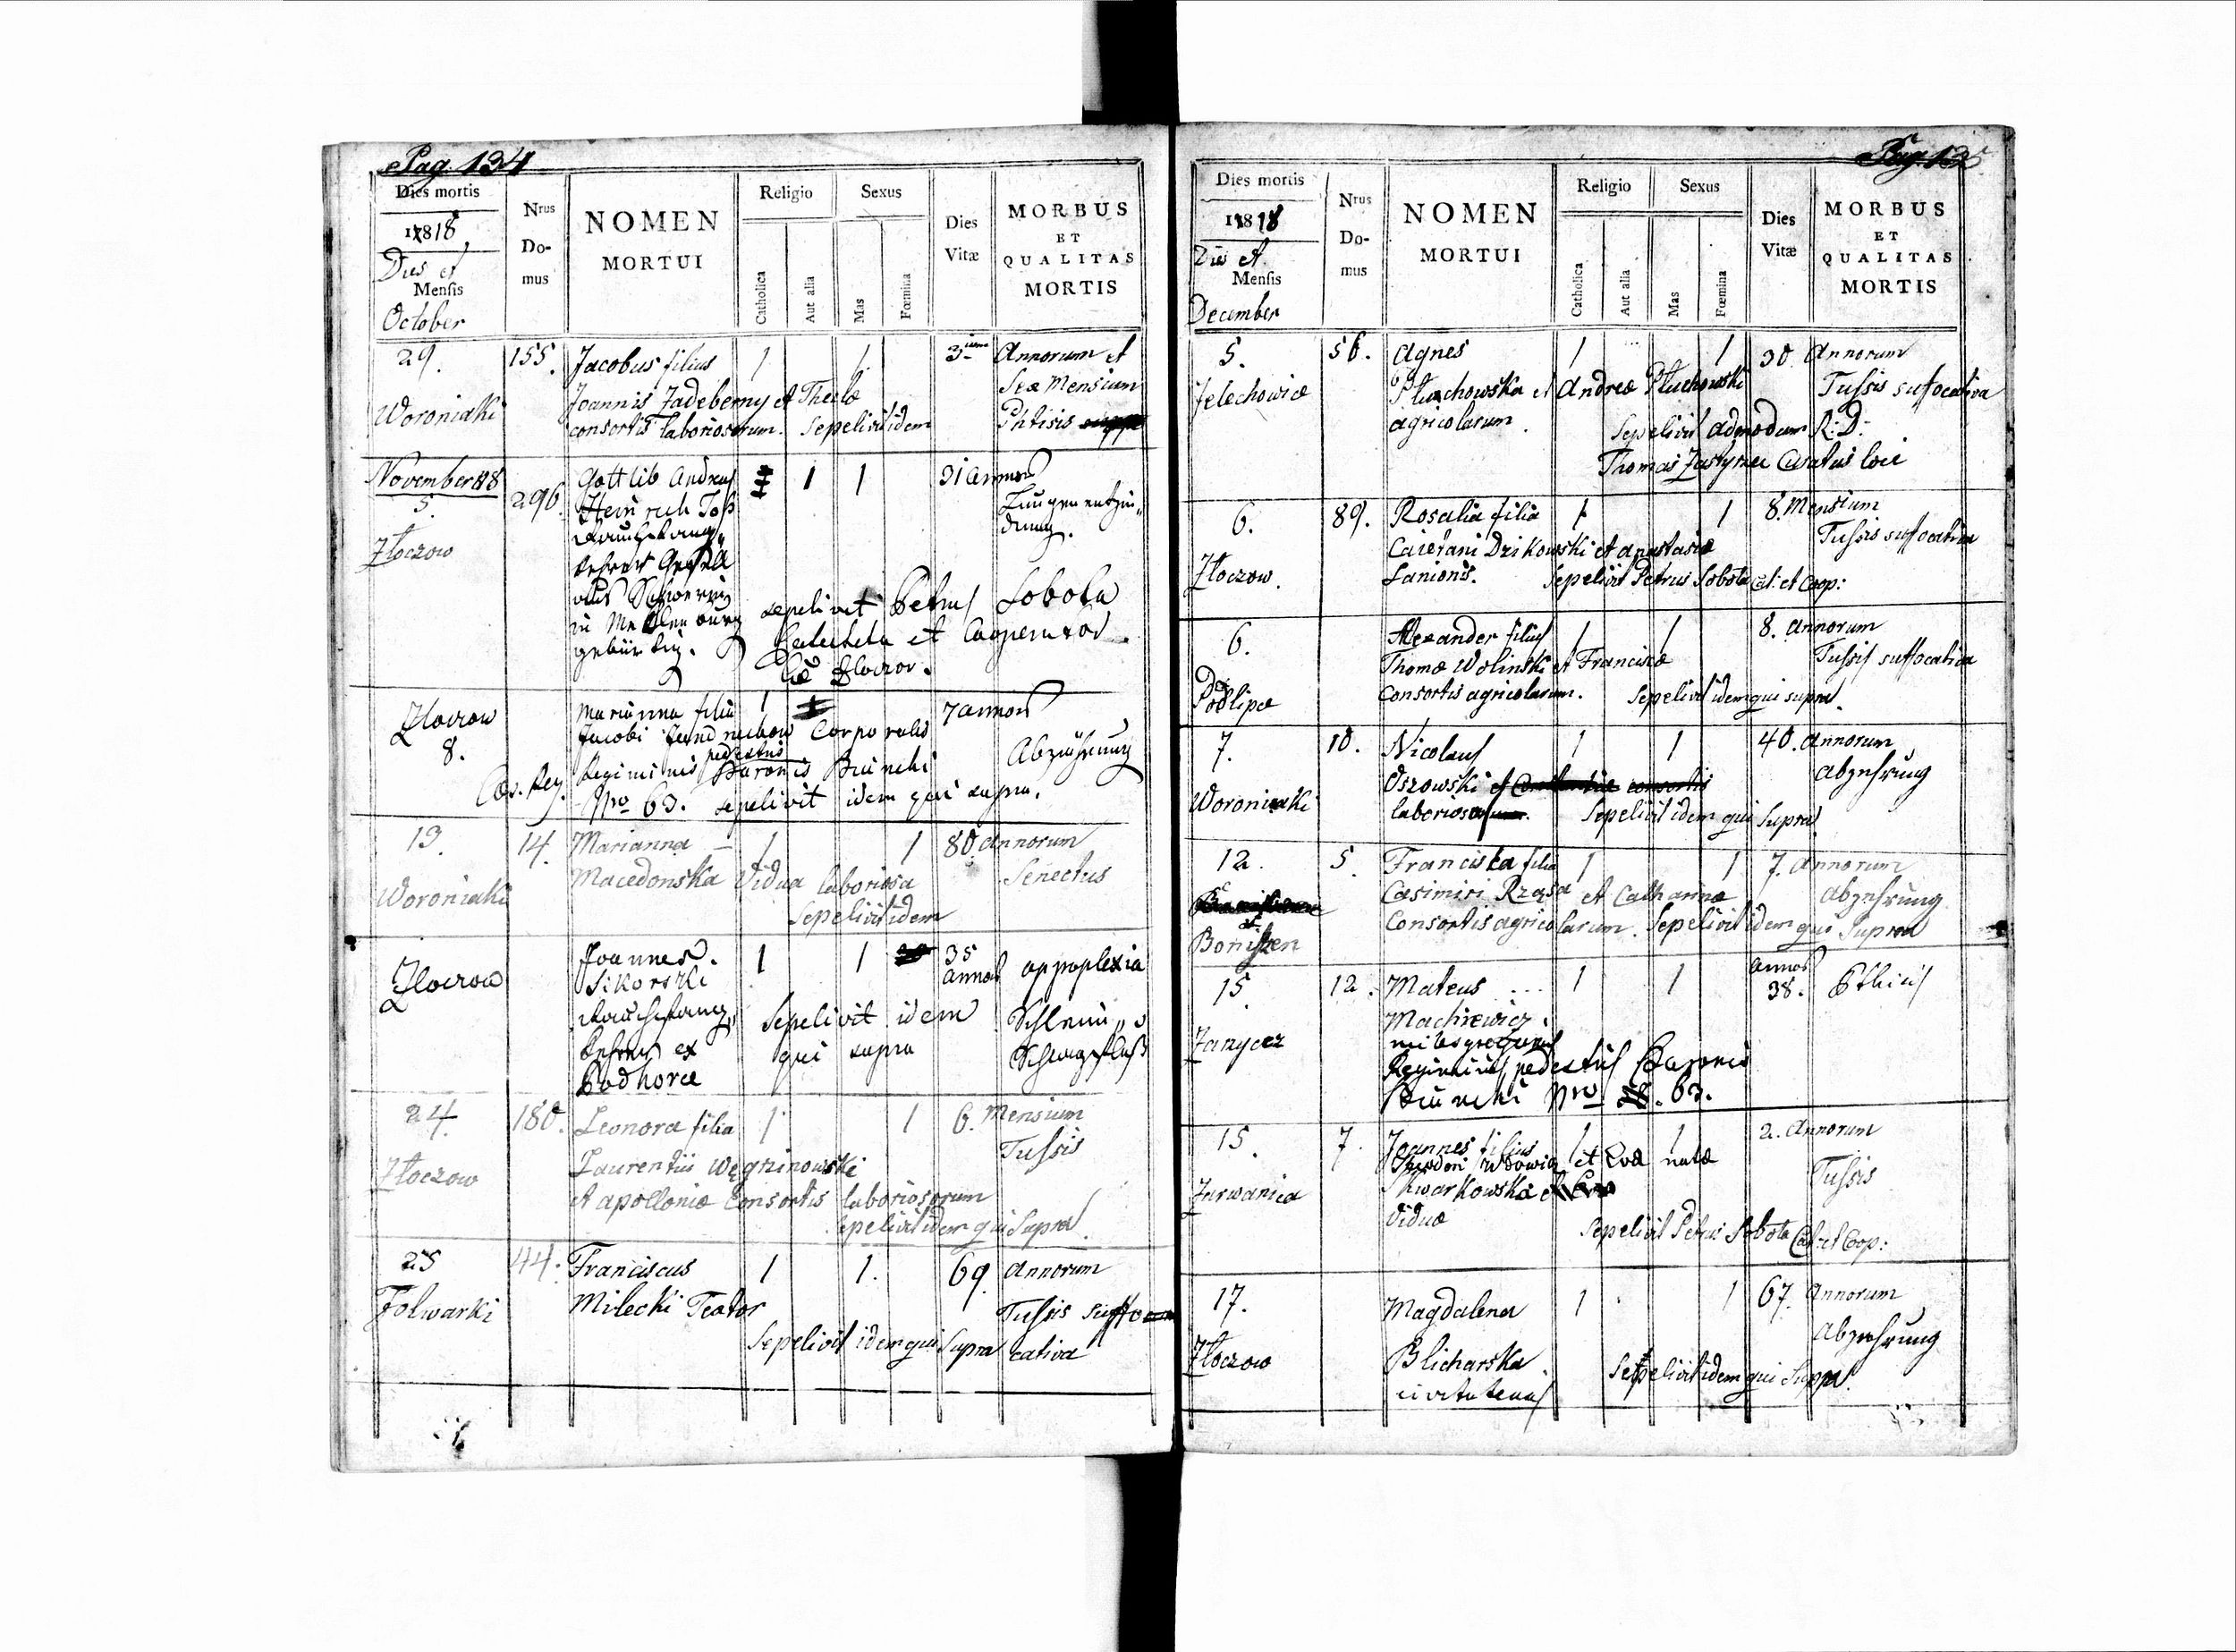 Pag. 134
Dies mortis
1818
Dies et
Mensis
October
Nrus
Do-
mus
NOMEN
MORTUI
Religio
Catholica
Aut alia
Sexus
Mas
Fœmina
Dies
Vitæ
MORBUS
ET
QUALITAS
MORTIS
29. 155. Jacobus filius 1 1. 3 Annorum et
Joannis et Theclæ Mensium
Woroniaki consortis laboriosorum. Sepelivit idem Phtisis
November 818
5. 296. Gottlib Andreas 1 1 31 annor
Heinrich
Złoczow Lungenentzün„
dung.
aus Schwerin
in
gebürtig.
sepelivit Petrus Sobota
Catecheta et Cooperator
Złoczow Marianna filia 1 7 annor
8. Jacobi Corporalis
pedestris
Regiminis Baronis Bianchi Abzährung
Nro 63. sepelivit idem qui supra.
13. 14. Marianna 1 1 80 annorum
Macedonska Vidua laboriosa Senectus
Woroniaki Sepelivit idem
Złoczow Joannes 1 1 35
Sikorski annos appoplexia
Sepelivit idem
ex qui supra
Podhorce
24. 180. Leonora filia 1 1 6. Mensium
Laurentii Węgrinowski Tussis
Złoczow et Apolloniæ Consortis laboriosorum
Sepelivit idem qui Supra.
25 44. Franciscus 1 1. 69. Annorum
Folwarki Milecki Textor Tussis suffo
Sepelivit idem qui Supra cativa
Pag. 135
Dies mortis
1818
Dies et
Mensis
December
Nrus
Do-
mus
NOMEN
MORTUI
Religio
Catholica
Aut alia
Sexus
Mas
Fœmina
Dies
Vitæ
MORBUS
ET
QUALITAS
MORTIS
5. 56. Agnes 1 1 30. Annorum
Jelechowice Pluchowska et Andreæ Pluchowski Tussis suffocativa
agricolarum. Sepelivit admodum R: D:
Thomas Curatus loci
6. 89. Rosalia filia 1 1 8. Mensium
Caietani Dzikowski et Anastasiæ Tussis suffocativa
Złoczow. Lanionis. Sepelivit Petrus Sobota Cat: et Coop:
6. Alexander filius 1 1 8. Annorum
Thomæ Wolinski et Franciscæ Tussis suffocativa
Podlipce Consortis agricolarum. Sepelivit idem qui supra.
7. 10. Nicolaus 1 1 40. Annorum
Oszowski Abzehrung
Woroniaki Sepelivit idem qui Supra
12. 5. Franciska filia 1 1 7. Annorum
Casimiri Rząsa et Catharinæ Abzehrung
Consortis agricolarum. Sepelivit idem qui Supra
Boniszen
15. 12. Mateus 1 1 Annos
38.
Machiewicz.
miles gregarius
Regiminis pedestris Baronis
Bianchi Nro 63.
15. 7. Joannes filius 1 1 2. Annorum
et Eva nata
Zarwanica Skwarkowska Tussis
Viduæ
Sepelivit Petrus Sobota Cat et Coop:
17. Magdalena 1 1 67. Annorum
Abzehrung
Złoczow Blicharska
Sepelivit idem qui Supra.